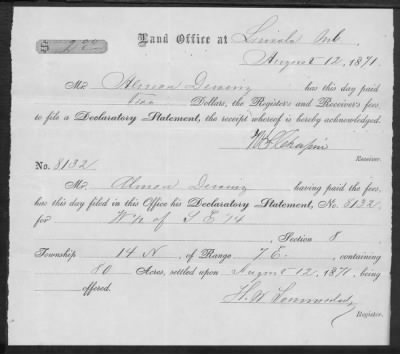 $ 2.00 Land Office at Lincoln Neb
August 12, 1871.
Mr. Almon Dewing has this day paid
two Dollars, the Register's and Receiver's fees,
to file a Declaratory Statement, the receipt whereof is hereby acknowledged.
Receiver.
No. 8132
Mr. Almon Dewing having paid the fees,
has this day filed in this Office his Declaratory Statement, No. 8132
for W ½ of S E ¼
, Section 8
Township 14 N, of Range 7 E, containing
80 Acres, settled upon August 12, 1871, being
offered.
Register.